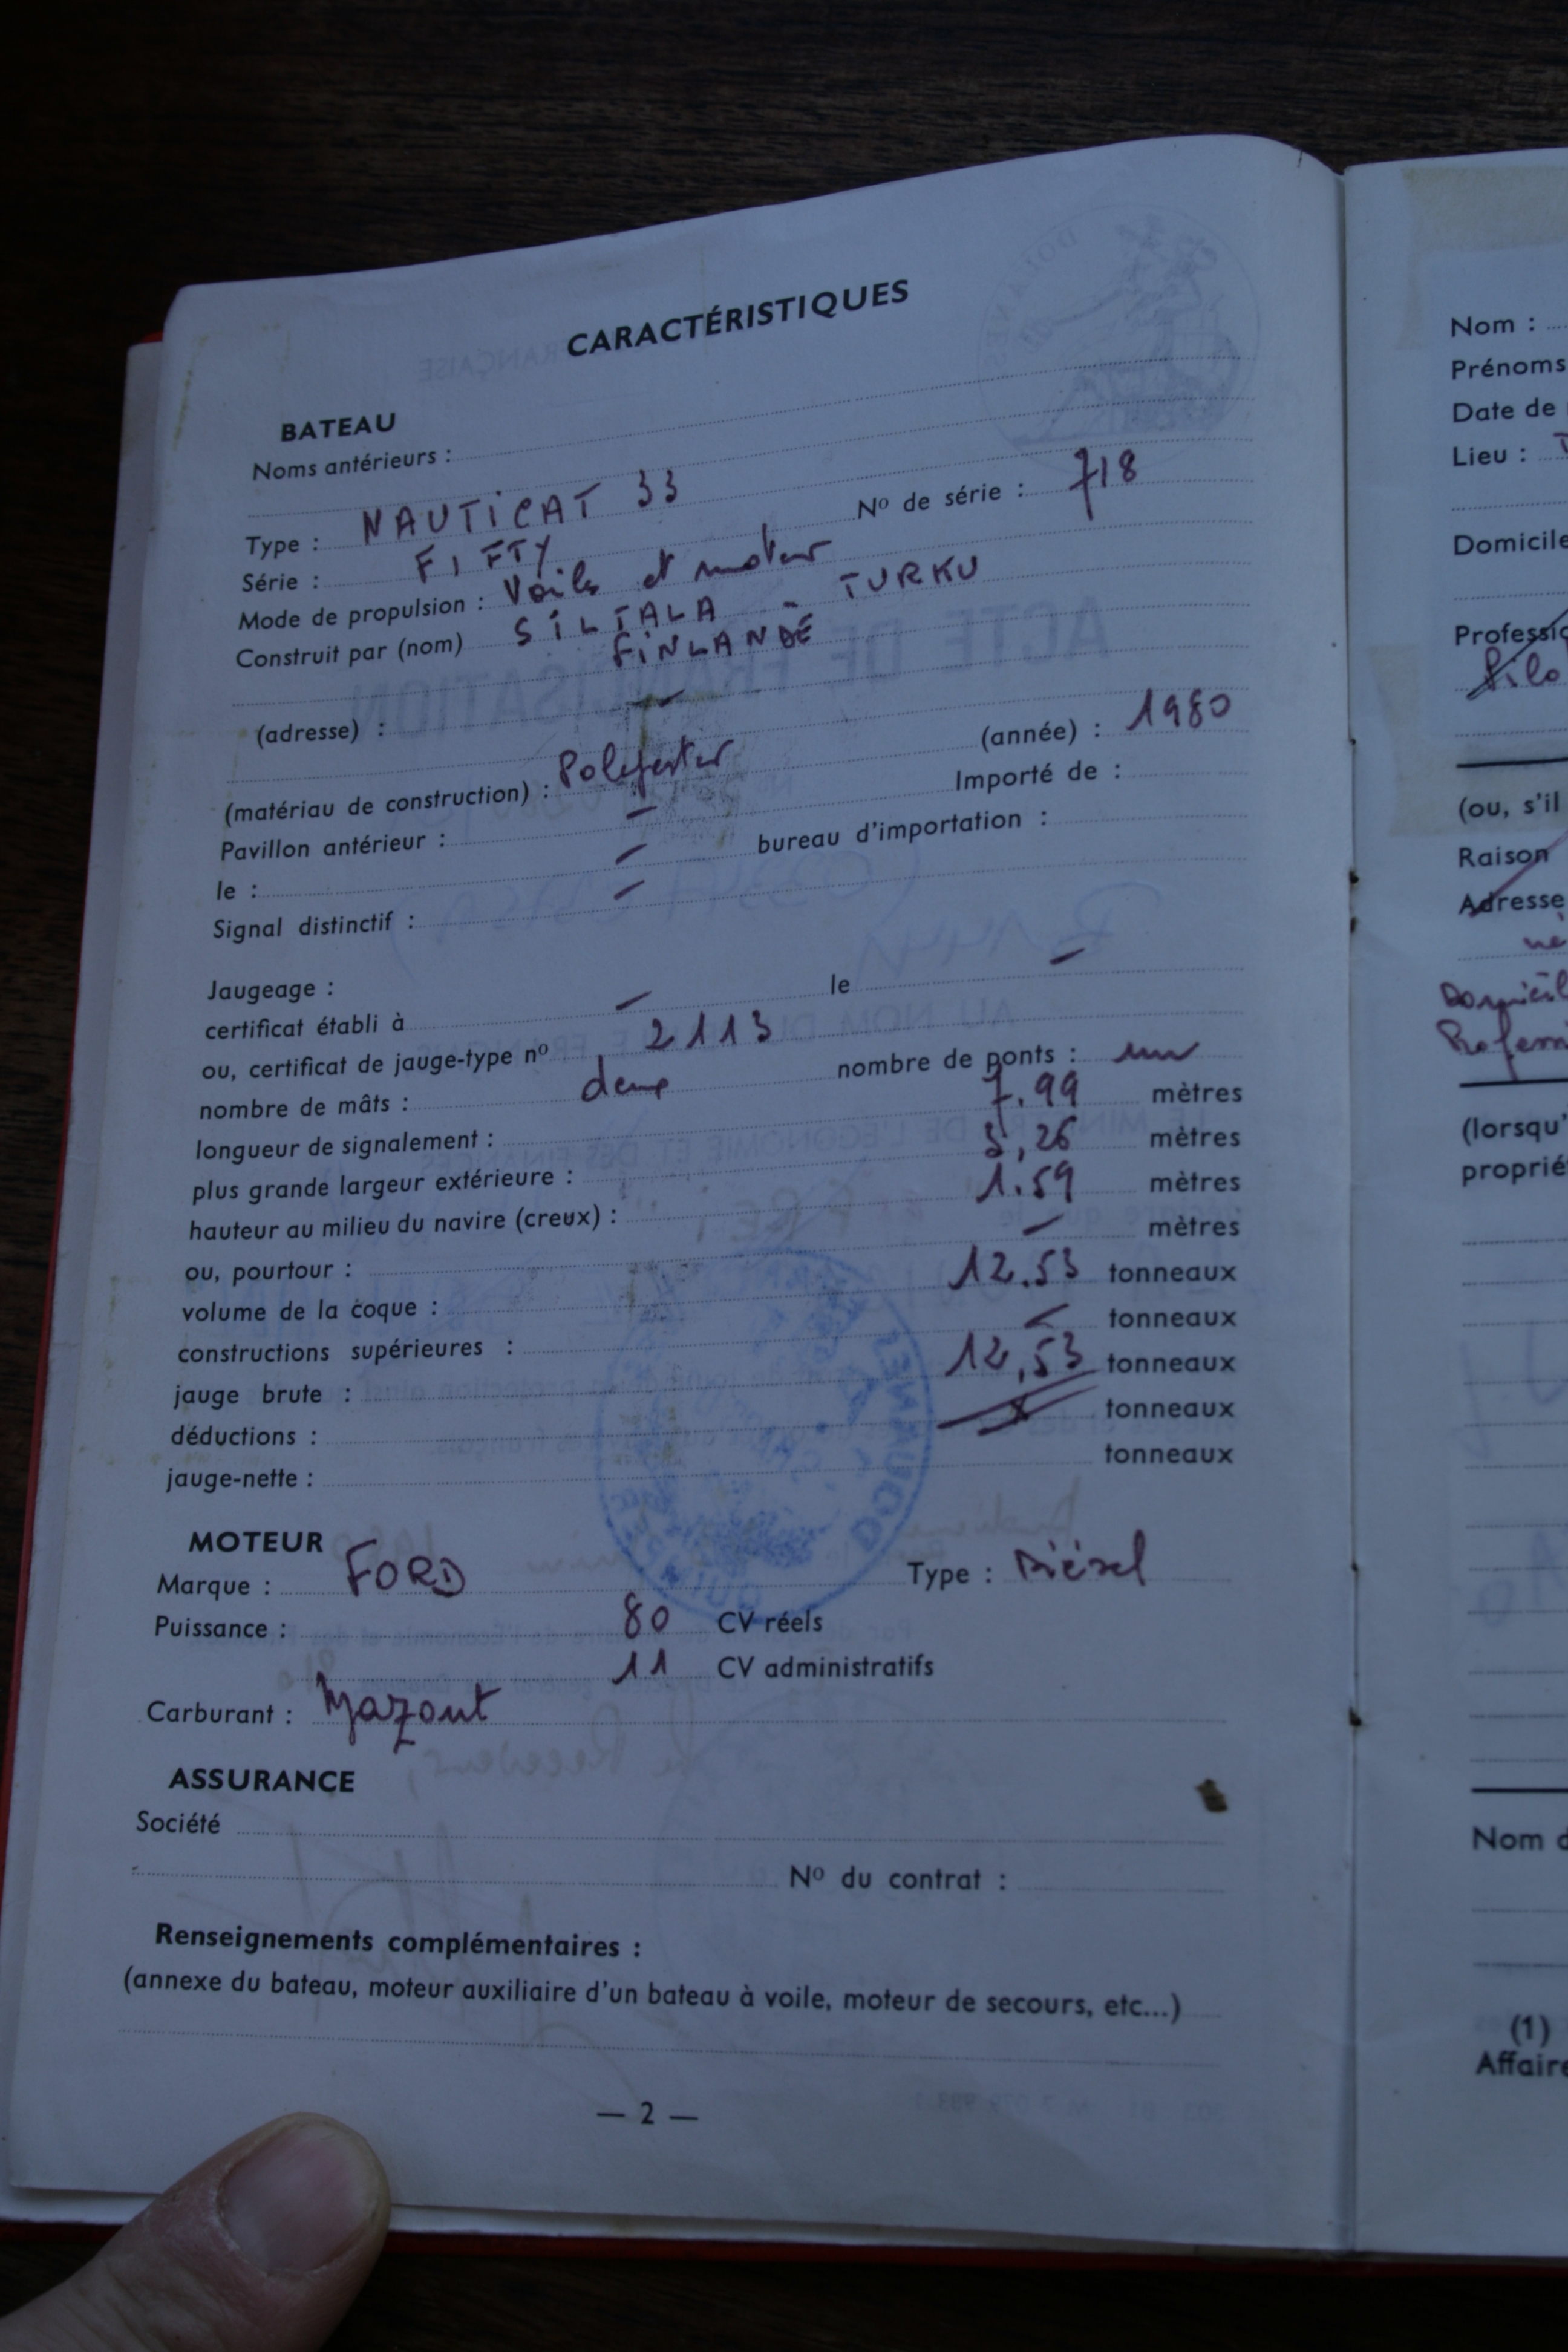 CARACTÉRISTIQUES
BATEAU
Noms antérieurs :
Type : NAUTICAT 33 No de série : 718
Série : FIFTY
Mode de propulsion : Voile et moteur
Construit par (nom) SILTALA - TURKU
FINLANDE
(adresse) : —
(matériau de construction) : Polyester (année) : 1980
Pavillon antérieur : — Importé de :
le : — bureau d'importation :
Signal distinctif : —
Jaugeage :
certificat établi à — le —
ou, certificat de jauge-type no 2113
nombre de mâts : deux nombre de ponts : un
longueur de signalement : 7.99 mètres
plus grande largeur extérieure : 3,26 mètres
hauteur au milieu du navire (creux) : 1.59 mètres
ou, pourtour : — mètres
volume de la coque : 12.53 tonneaux
constructions supérieures : — tonneaux
jauge brute : 12,53 tonneaux
déductions : tonneaux
jauge-nette : tonneaux
MOTEUR
Marque : FORD Type : Diésel
Puissance : 80 CV réels
11 CV administratifs
Carburant : Mazout
ASSURANCE
Société
No du contrat :
Renseignements complémentaires :
(annexe du bateau, moteur auxiliaire d'un bateau à voile, moteur de secours, etc...)
— 2 —
Nom :
Prénoms
Date de
Lieu :
Domicile
(ou, s'il
Raison
Adresse
(lorsqu'
Nom
(1)